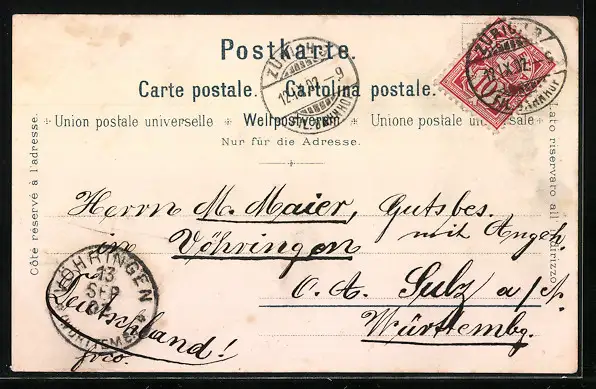 Postkarte.
Carte postale. Cartolina postale.
Union postale universelle Weltpostverein Unione postale universale
Nur für die Adresse.
Côté réservé à l'adresse.
Lato riservato all indirizzo.
10
12.IX.02.
FIL. BAHNHOF
12.IX.02.–9
FIL. BAHNHOF
Herrn M. Maier, Gutsbes.
in Vöhringen mit Angeh.
O. A. Sulz a/N.
Württembg.
in Deutschland!
frco.
VÖHRINGEN
13
SEP
02
(WÜRTTEMBERG)